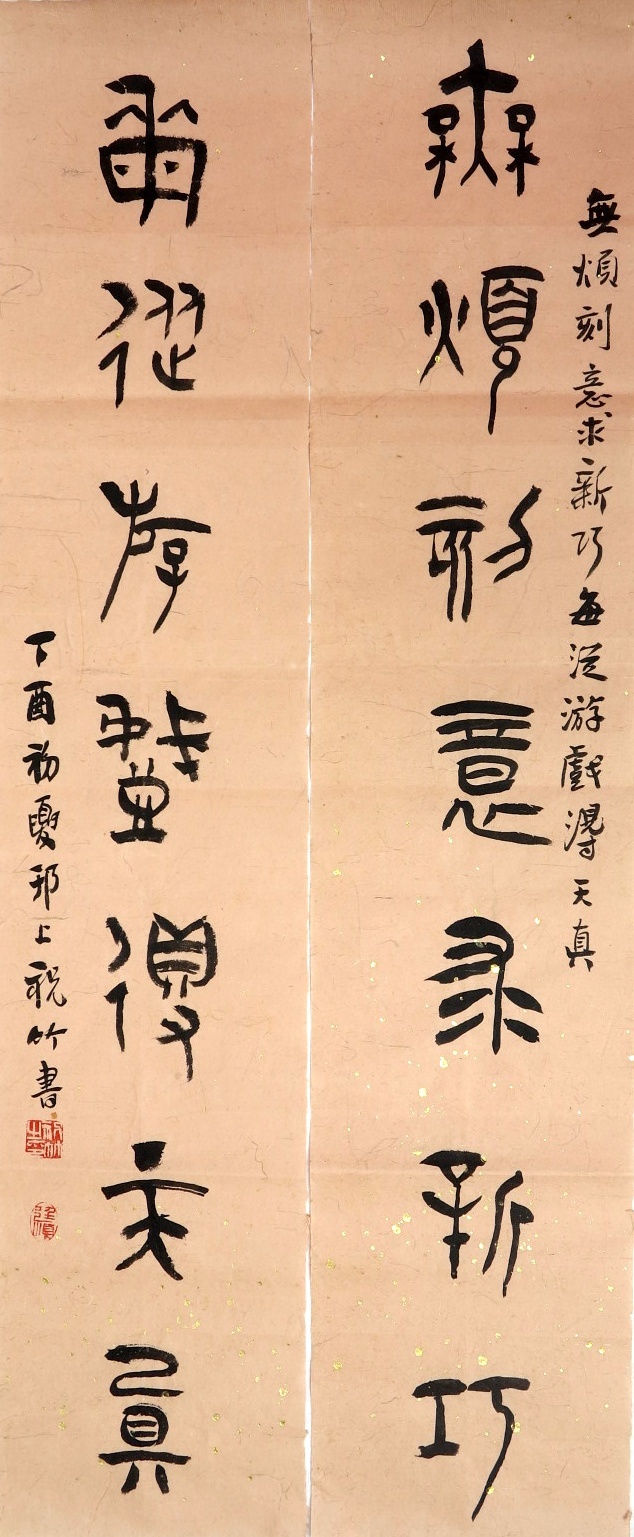 無煩刻意求新巧
無煩刻意求新巧每從游戲得天真
每從游戲得天真
丁酉初夏邗上祝竹書